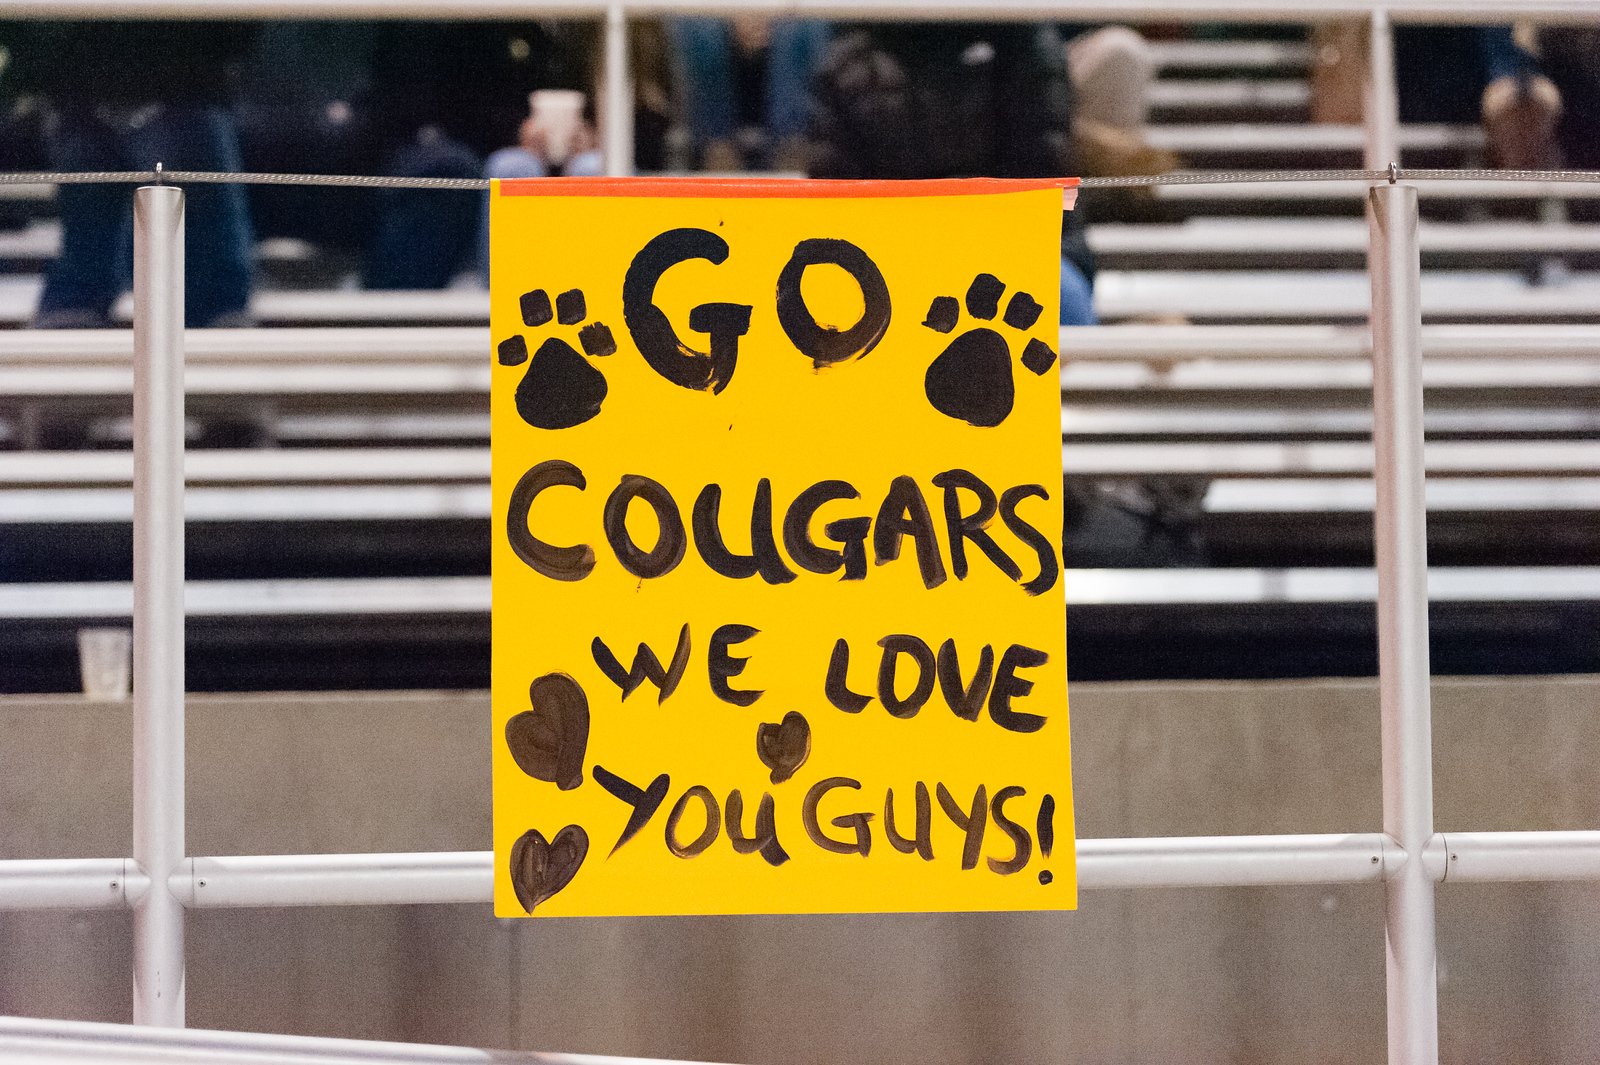 GO
COUGARS
WE LOVE
YOU GUYS!